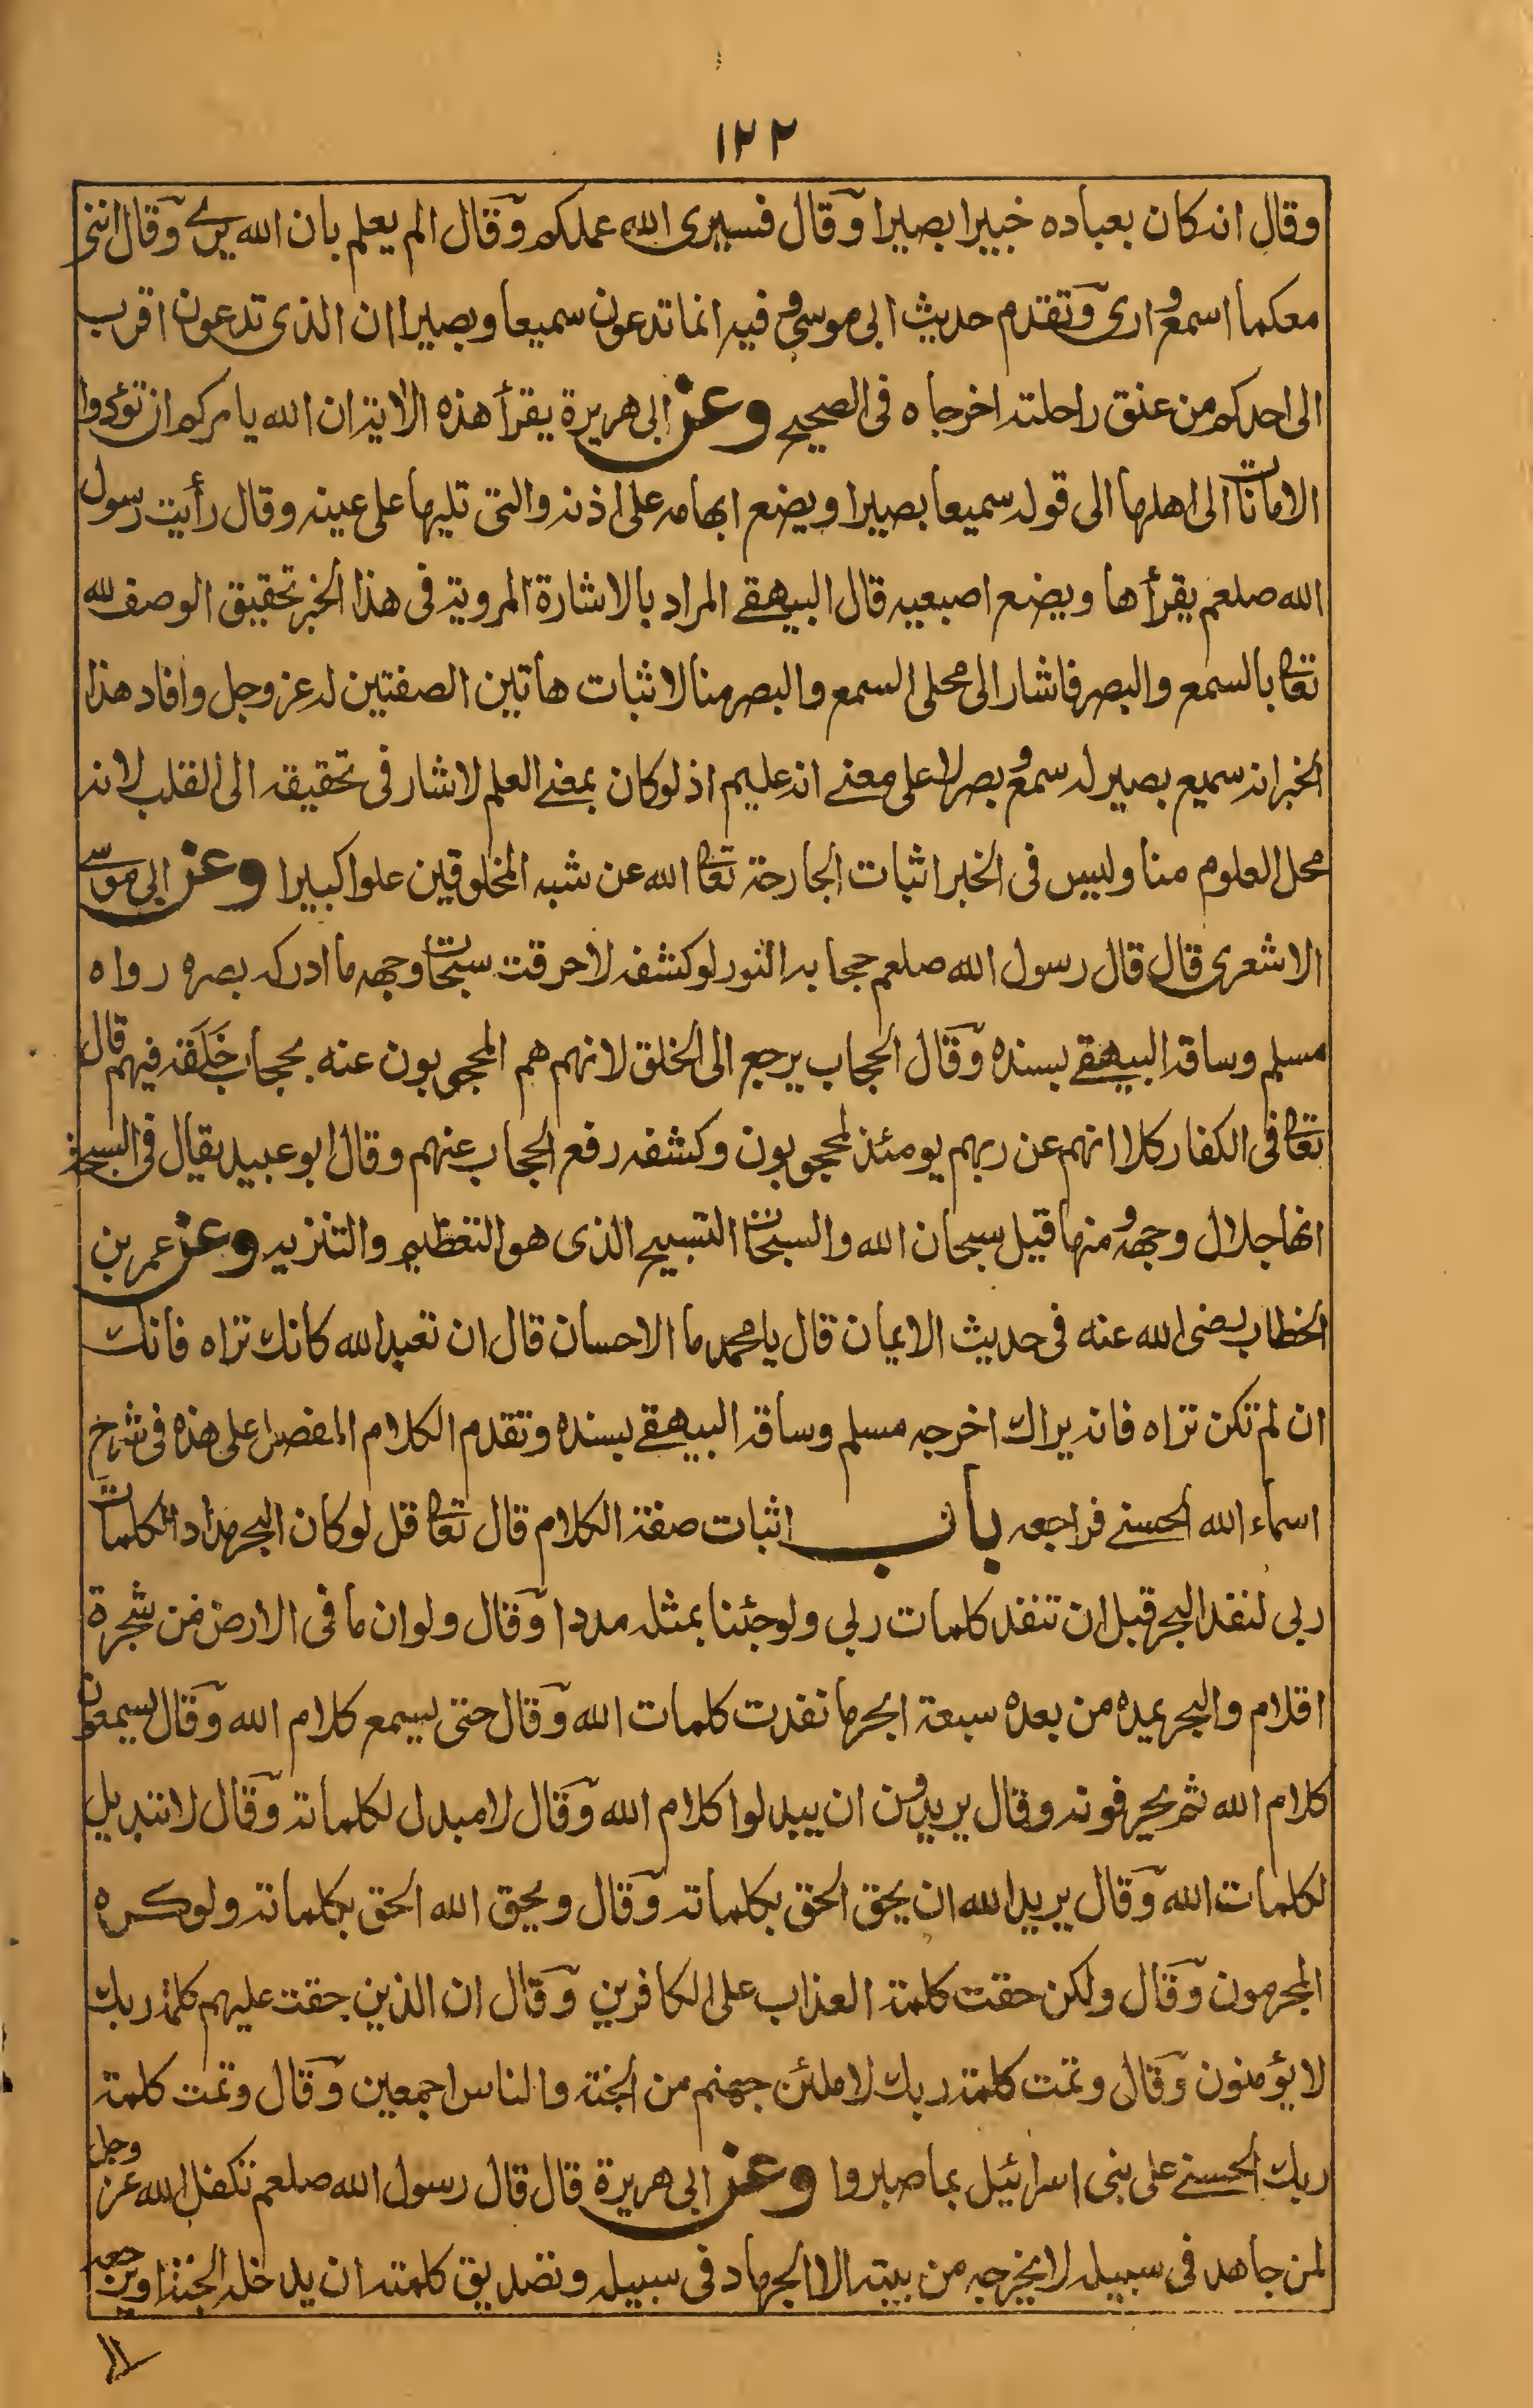 ١٢٢
وقال انه كان بعباده خبيرا بصيرا وقال فسيرى الله عملكم وقال الم يعلم بان الله يرى وقال انني
معكما اسمع وارى وتقدم حديث ابي موسى وفيه انما تدعون سميعا وبصيرا ان الذي تدعون اقرب
الى احدكم من عنق راحلته اخرجاه في الصحيح وعن ابي هريرة يقرأ هذه الاية ان الله يامركم ان تؤدوا
الامانات الى اهلها الى قوله سميعا بصيرا ويضع ابهامه على اذنه والتي تليها على عينه وقال رأيت رسول
الله صلعم يقرأها ويضع اصبعيه قال البيهقي المراد بالاشارة المروية في هذا الخبر تحقيق الوصف لله
تعالى بالسمع والبصر فاشار الى محلي السمع والبصر منا لاثبات هاتين الصفتين له عز وجل وافاد هذا
الخبر انه سميع بصير له سمع وبصر لا على معنى انه عليم اذ لو كان بمعنى العلم لاشار في تحقيقه الى القلب لانه
محل العلوم منا وليس في الخبر اثبات الجارحة تعالى الله عن شبه المخلوقين علوا كبيرا وعن ابي موسى
الاشعري قال قال رسول الله صلعم حجابه النور لو كشفه لاحرقت سبحات وجهه ما ادركه بصره رواه
مسلم وساقه البيهقي بسنده وقال الحجاب يرجع الى الخلق لانهم هم المحجوبون عنه بحجاب خلقه فيهم قال
تعالى في الكفار كلا انهم عن ربهم يومئذ لمحجوبون وكشفه رفع الحجاب عنهم وقال ابو عبيد يقال في السبحة
انها جلال وجهه ومنها قيل سبحان الله والسبحات التسبيح الذي هو التعظيم والتنزيه وعن عمر بن
الخطاب رضي الله عنه في حديث الايمان قال يا محمد ما الاحسان قال ان تعبد الله كانك تراه فانك
ان لم تكن تراه فانه يراك اخرجه مسلم وساقه البيهقي بسنده وتقدم الكلام المفصل على هذه في شرح
اسماء الله الحسنى فراجعه باب اثبات صفة الكلام قال تعالى قل لو كان البحر مدادا لكلمات
ربي لنفد البحر قبل ان تنفد كلمات ربي ولو جئنا بمثله مددا وقال ولو ان ما في الارض من شجرة
اقلام والبحر يمده من بعده سبعة ابحر ما نفدت كلمات الله وقال حتى يسمع كلام الله وقال يسمعون
كلام الله ثم يحرفونه وقال يريدون ان يبدلوا كلام الله وقال لا مبدل لكلماته وقال لا تبديل
لكلمات الله وقال يريد الله ان يحق الحق بكلماته وقال ويحق الله الحق بكلماته ولو كره
المجرمون وقال ولكن حقت كلمة العذاب على الكافرين وقال ان الذين حقت عليهم كلمة ربك
لا يؤمنون وقال وتمت كلمة ربك لاملئن جهنم من الجنة والناس اجمعين وقال وتمت كلمة
ربك الحسنى على بني اسرائيل بما صبروا وعن ابي هريرة قال قال رسول الله صلعم تكفل الله عز وجل
لمن جاهد في سبيله لا يخرجه من بيته الا الجهاد في سبيله وتصديق كلمته ان يدخله الجنة او يرجعه